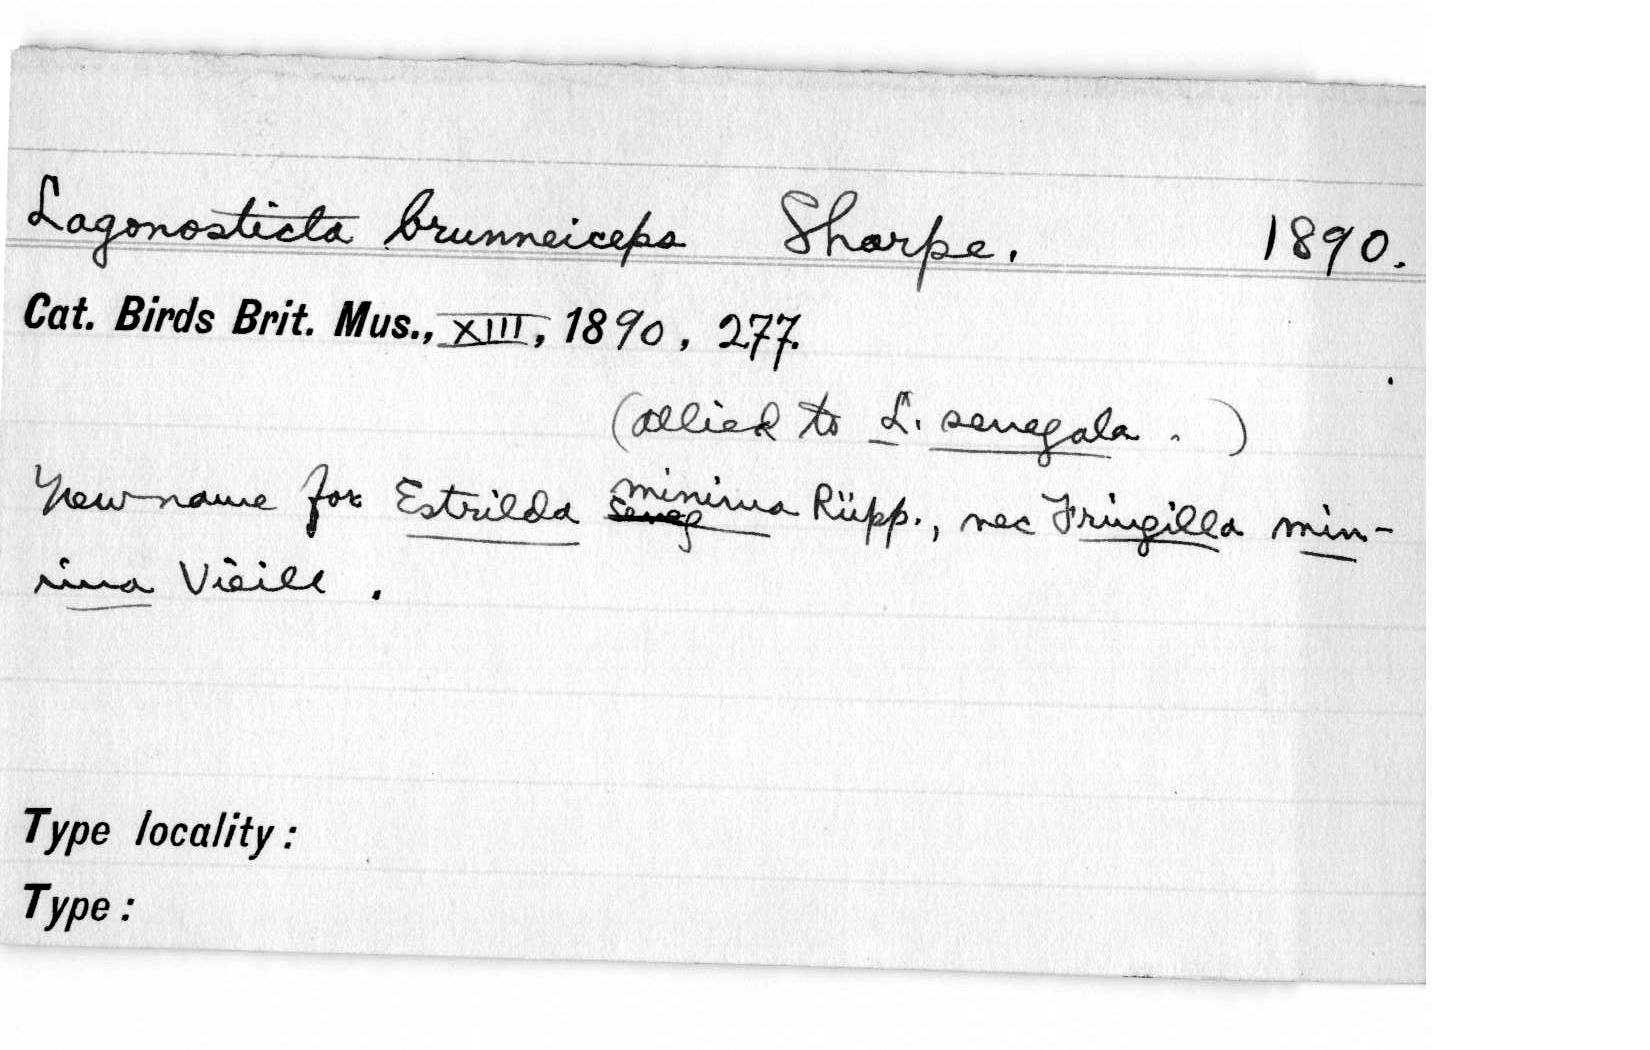 Lagonosticta brunneiceps Sharpe. 1890.
Cat. Birds Brit. Mus., XIII, 1890, 277.
(allied to L. senegala.)
New name for Estrilda minima Rüpp., nec Fringilla min-
nima Vieill.
Type locality:
Type: